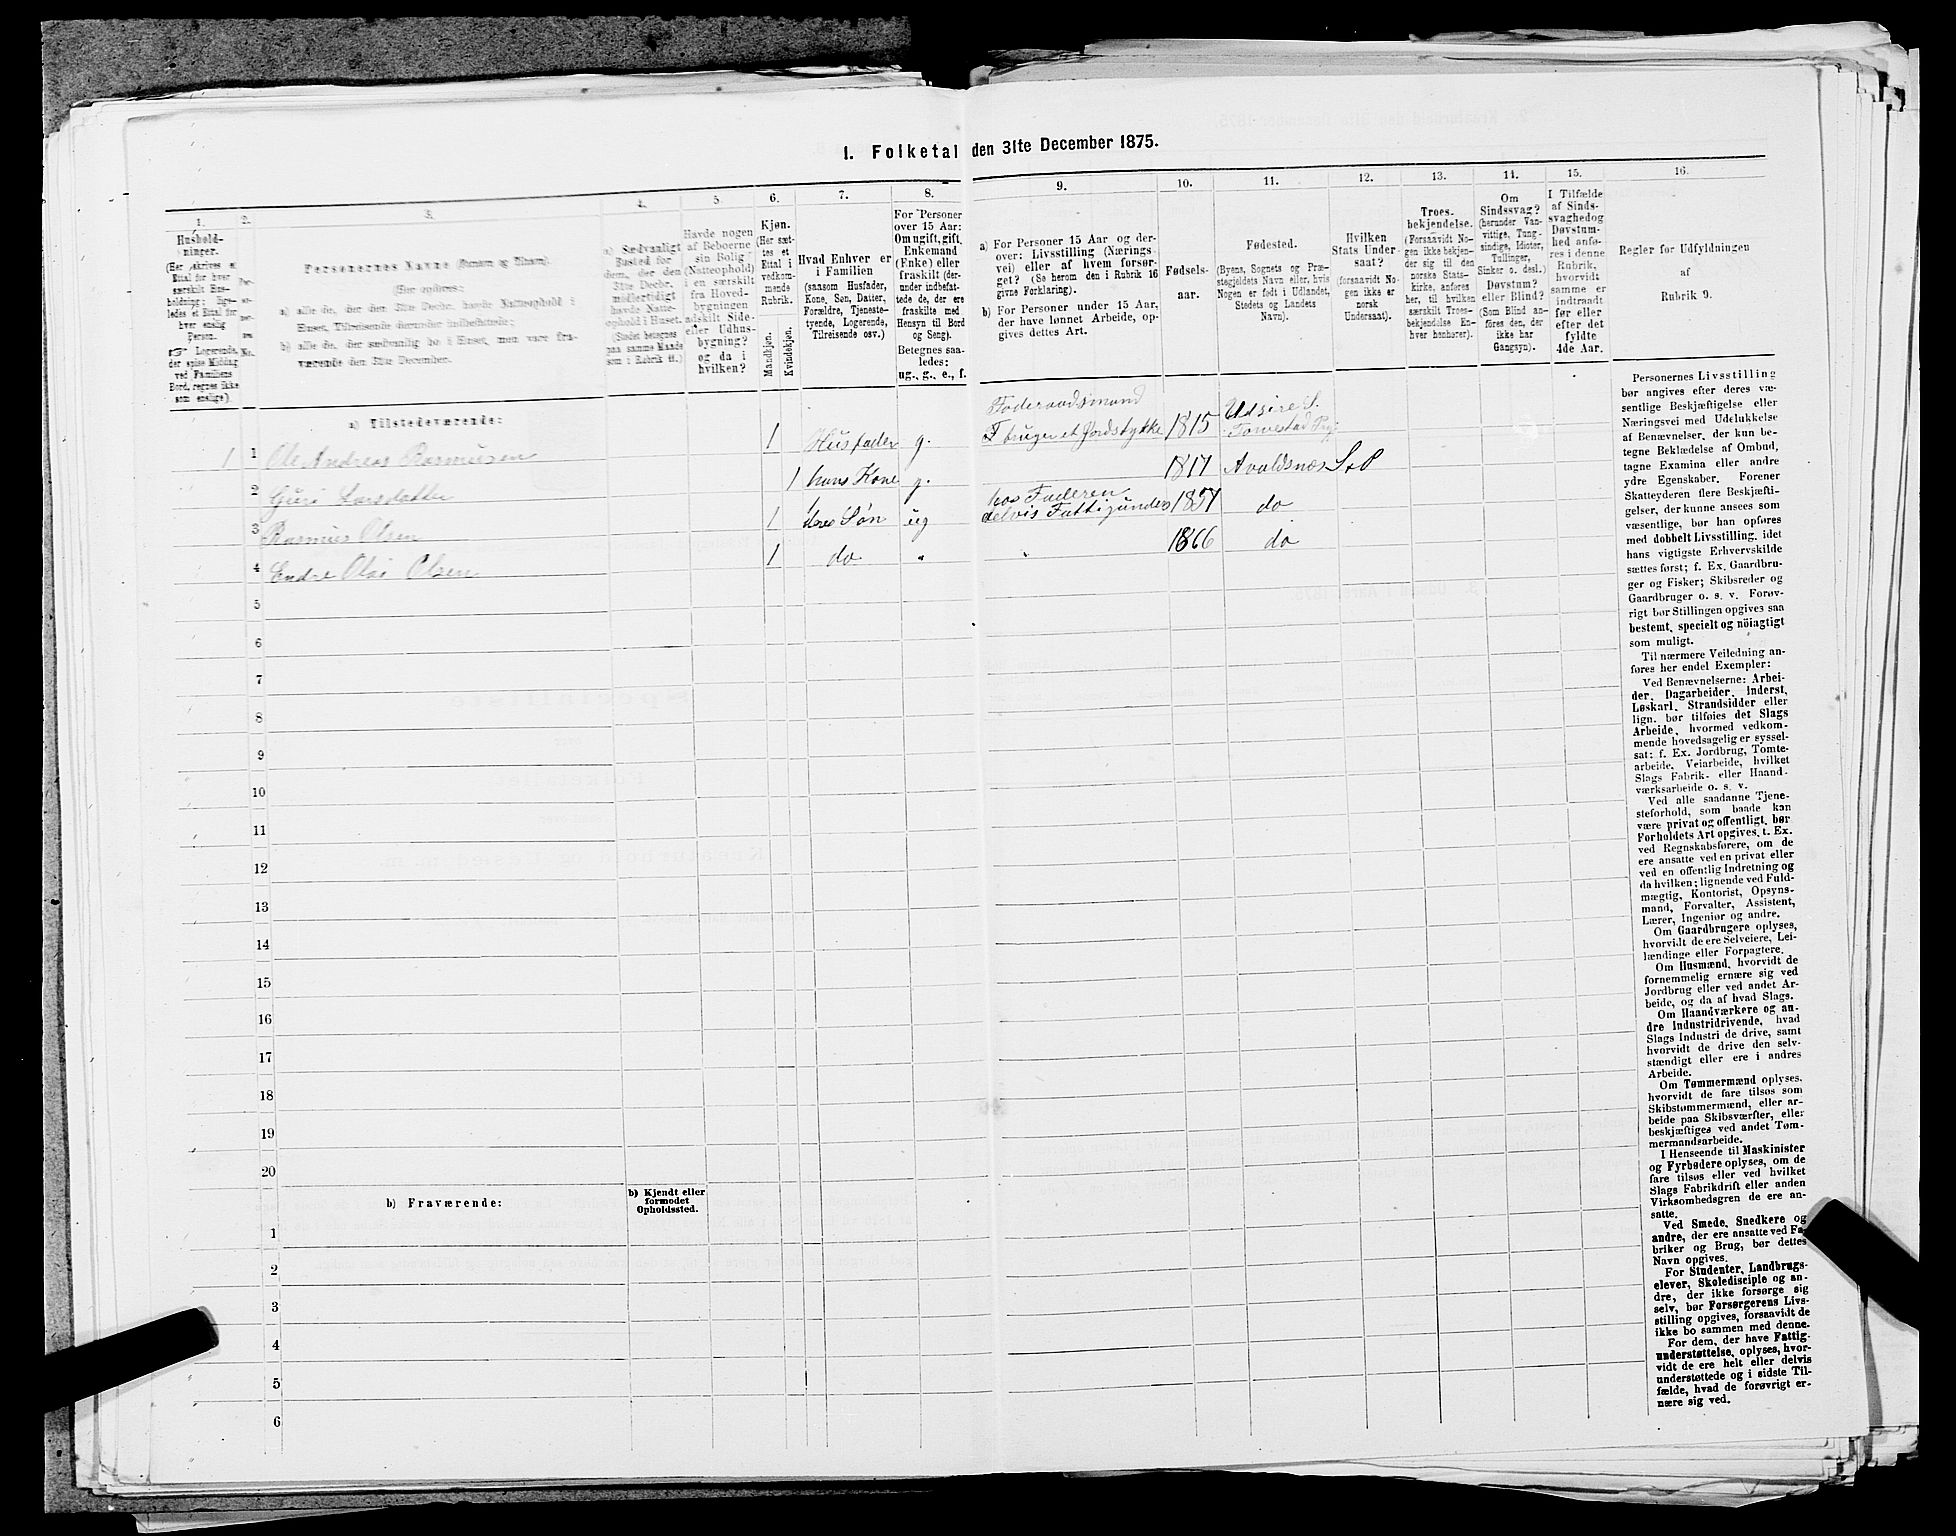 1. Folketal den 31te December 1875.
1. 2. 3. 4. 5. 6. 7. 8. 9. 10. 11. 12. 13. 14. 15. 16.
Hushold-
ninger.
(Her skrives et
Ettal for hver
særskilt Hus-
holdning; lige-
ledes et Ettal for
hver enslig
Person.
☞ Logerende,
der spise Middag
ved Familiens
Bord, regnes ikke
som enslige).
Personernes Navne (Fornavn og Tilnavn).
(Her opføres:
a) alle de, der den 31te Decbr. havde Natteophold i
Huset, Tilreisende derunder indbefattede;
b) alle de, der sædvanlig bo i Huset, men vare fra-
værende den 31te December.
a) Sædvanligt
Bosted for
dem, der den
31te Decbr.
midlertidigt
havde Natte-
ophold i Huset.
(Stedet betegnes
paa samme Maade
som i Rubrik 11.)
Havde nogen
af Beboerne
sin Bolig
(Natteophold)
i en særskilt
fra Hoved-
bygningen
adskilt Side-
eller Udhus-
bygning?
og da i
hvilken?
Kjøn.
(Her sæt-
tes et
Ettal i
vedkom-
mende
Rubrik.
Mandkjøn.
Kvindekjøn.
Hvad Enhver er
i Familien
(saasom Husfader,
Kone, Søn, Datter,
Forældre, Tjeneste-
tyende, Logerende,
Tilreisende osv.)
For Personer
over 15 Aar:
Om ugift, gift,
Enkemand
(Enke) eller
fraskilt (der-
under indbefat-
tede de, der ere
fraskilte med
Hensyn til Bord
og Seng).
Betegnes saa-
ledes:
ug., g., e., f.
a) For Personer 15 Aar og der-
over: Livsstilling (Nærings-
vei) eller af hvem forsør-
get? (Se herom den i Rubrik 16
givne Forklaring).
b) For Personer under 15 Aar,
der have lønnet Arbeide, op-
gives dettes Art.
Fødsels-
aar.
Fødested.
(Byens, Sognets og Præ-
stegjeldets Navn eller, hvis
Nogen er født i Udlandet,
Stedets og Landets
Navn).
Hvilken
Stats Under-
saat?
(forsaavidt No-
gen ikke er
norsk
Undersaat).
Troes-
bekjendelse.
(Forsaavidt No-
gen ikke bekjen-
der sig til den
norske Stats-
kirke, anføres
her, til hvilken
særskilt Troes-
bekjendelse En-
hver henhører).
Om
Sindssvag?
(herunder Van-
vittige, Tung-
sindige, Idioter,
Tullinger,
Sinker o. desl.)
Døvstum?
eller Blind?
(Som Blind an-
føres den, der
ikke har
Gangsyn).
I Tilfælde
af Sinds-
svaghed og
Døvstum-
hed anfø-
res i denne
Rubrik,
hvorvidt
samme er
indtraadt
før eller
efter det
fyldte
4de Aar.
Regler for Udfyldningen
af
Rubrik 9.
a) Tilstedeværende:
Føderaadsmand Udsire S.
1 1 Ole Andreas Rasmussen 1 Husfader g. bruger et Jordstykke 1815 Torvestad
2 Guri Larsdatter 1 hans Kone g. 1817 Avaldsnæs S & P
hos Faderen
3 Rasmus Olsen 1 deres Søn ug delvis 1857 do
4 Endre Olai Olsen 1 do " " 1866 do
5
6
7
8
9
10
11
12
13
14
15
16
17
18
19
20
b) Fraværende:
b) Kjendt eller
formodet
Opholdssted.
1
2
3
4
5
6
Personernes Livsstilling
bør angives efter deres væ-
sentlige Beskjæftigelse eller
Næringsvei med Udelukkelse
af Benævnelser, der kun be-
tegne Beklædelse af Ombud,
tagne Examina eller andre
ydre Egenskaber. Forener
Skatteyderen flere Beskjæfti-
gelser, der kunne ansees som
væsentlige, bør han opføres
med dobbelt Livsstilling, idet
hans vigtigste Erhvervskilde
sættes først; f. Ex. Gaardbru-
ger og Fisker; Skibsreder og
Gaardbruger o. s. v. Forøv-
rigt bør Stillingen opgives saa
bestemt, specielt og nöiagtigt
som muligt.
Til nærmere Veiledning an-
føres her endel Exempler:
Ved Benævnelserne: Arbei-
der, Dagarbeider, Inderst,
Løskarl, Strandsidder eller
lign. bør tilføies det Slags
Arbeide, hvormed vedkom-
mende hovedsagelig er syssel-
sat; f. Ex. Jordbrug, Tomte-
arbeide, Veiarbeide, hvilket
Slags Fabrik- eller Haand-
værksarbeide o. s. v.
Ved alle saadanne Tjene-
steforhold, som baade kan
være privat og offentligt, bør
Forholdets Art opgives, t. Ex.
ved Regnskabsførere, om de
ere ansatte ved en privat eller
ved en offentlig Indretning og
da hvilken; lignende ved Fuld-
mægtig, Kontorist, Opsyns-
mand, Forvalter, Assistent,
Lærer, Ingeniør og andre.
Om Gaardbrugere oplyses,
hvorvidt de ere Selveiere, Lei-
lændinge eller Forpagtere.
Om Husmænd, hvorvidt de
fornemmelig ernære sig ved
Jordbrug eller ved andet Ar-
beide, og da af hvad Slags.
Om Haandværkere og an-
dre Industridrivende, hvad
Slags Industri de drive, samt
hvorvidt de drive den selv-
stændigt eller ere i andres
Arbeide.
Om Tømmermænd oplyses,
hvorvidt de fare tilsøs som
Skibstømmermænd, eller ar-
beide paa Skibsværfter, eller
beskjæftiges ved andet Tøm-
mermandsarbeide.
I Henseende til Maskinister
og Fyrbødere oplyses, om de
fare tilsøs eller ved hvilket
Slags Fabrikdrift eller anden
Virksomhedsgren de ere an-
satte.
Ved Smede, Snedkere og
andre, der ere ansatte ved Fa-
briker og Brug, bør dettes
Navn opgives.
For Studenter, Landbrugs-
elever, Skoledisciple og an-
dre, der ikke forsørge sig
selv, bør Forsørgerens Livs-
stilling opgives, forsaavidt de
ikke bo sammen med denne.
For dem, der have Fattig-
understøttelse, oplyses, hvor-
vidt de ere helt eller delvis
understøttede og i sidste Til-
fælde, hvad de forøvrigt er-
nære sig ved.